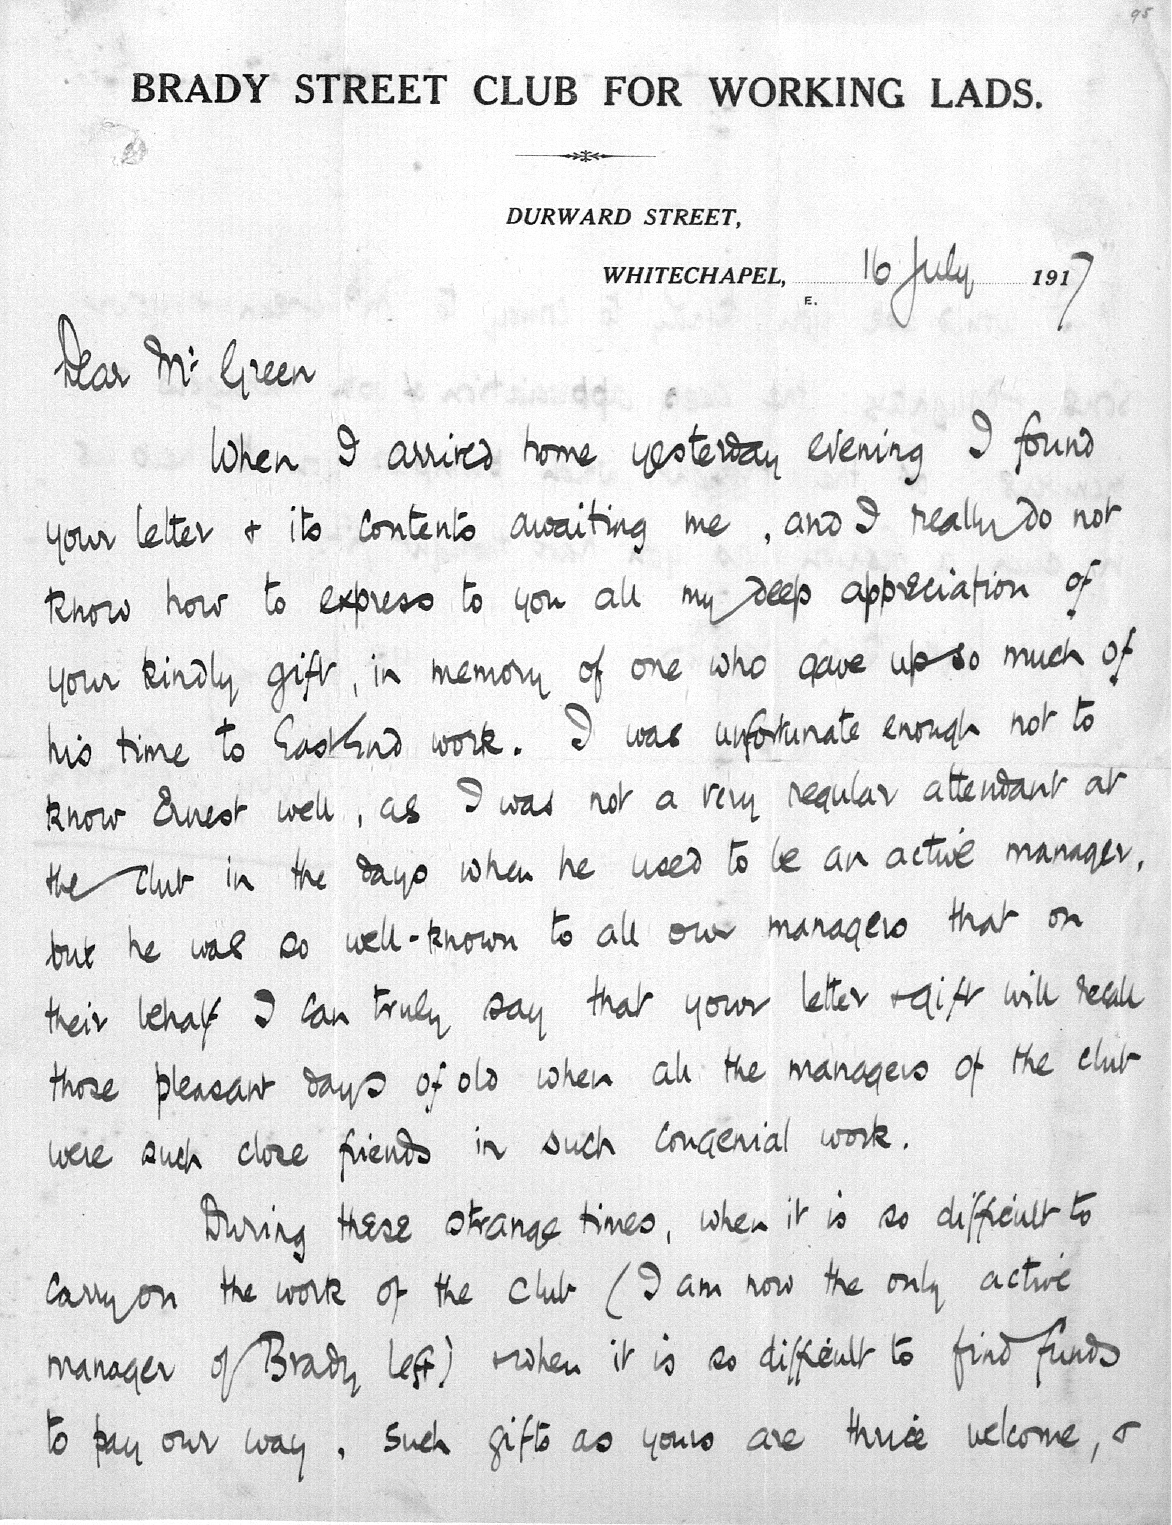 95
BRADY STREET CLUB FOR WORKING LADS.
DURWARD STREET,
WHITECHAPEL, 16 July 1917
E.
Dear Mr Green
When I arrived home yesterday evening I found
your letter & its contents awaiting me, and I really do not
know how to express to you all my deep appreciation of
your kindly gift, in memory of one who gave up so much of
his time to East End work. I was unfortunate enough not to
know Ernest well, as I was not a very regular attendant at
the club in the days when he used to be an active manager,
but he was so well-known to all our managers that on
their behalf I can truly say that your letter & gift will recall
those pleasant days of old when all the managers of the club
were such close friends in such congenial work.
During these strange times, when it is so difficult to
carry on the work of the club (I am now the only active
manager of Brady left) & when it is so difficult to find funds
to pay our way, such gifts as yours are thrice welcome, &